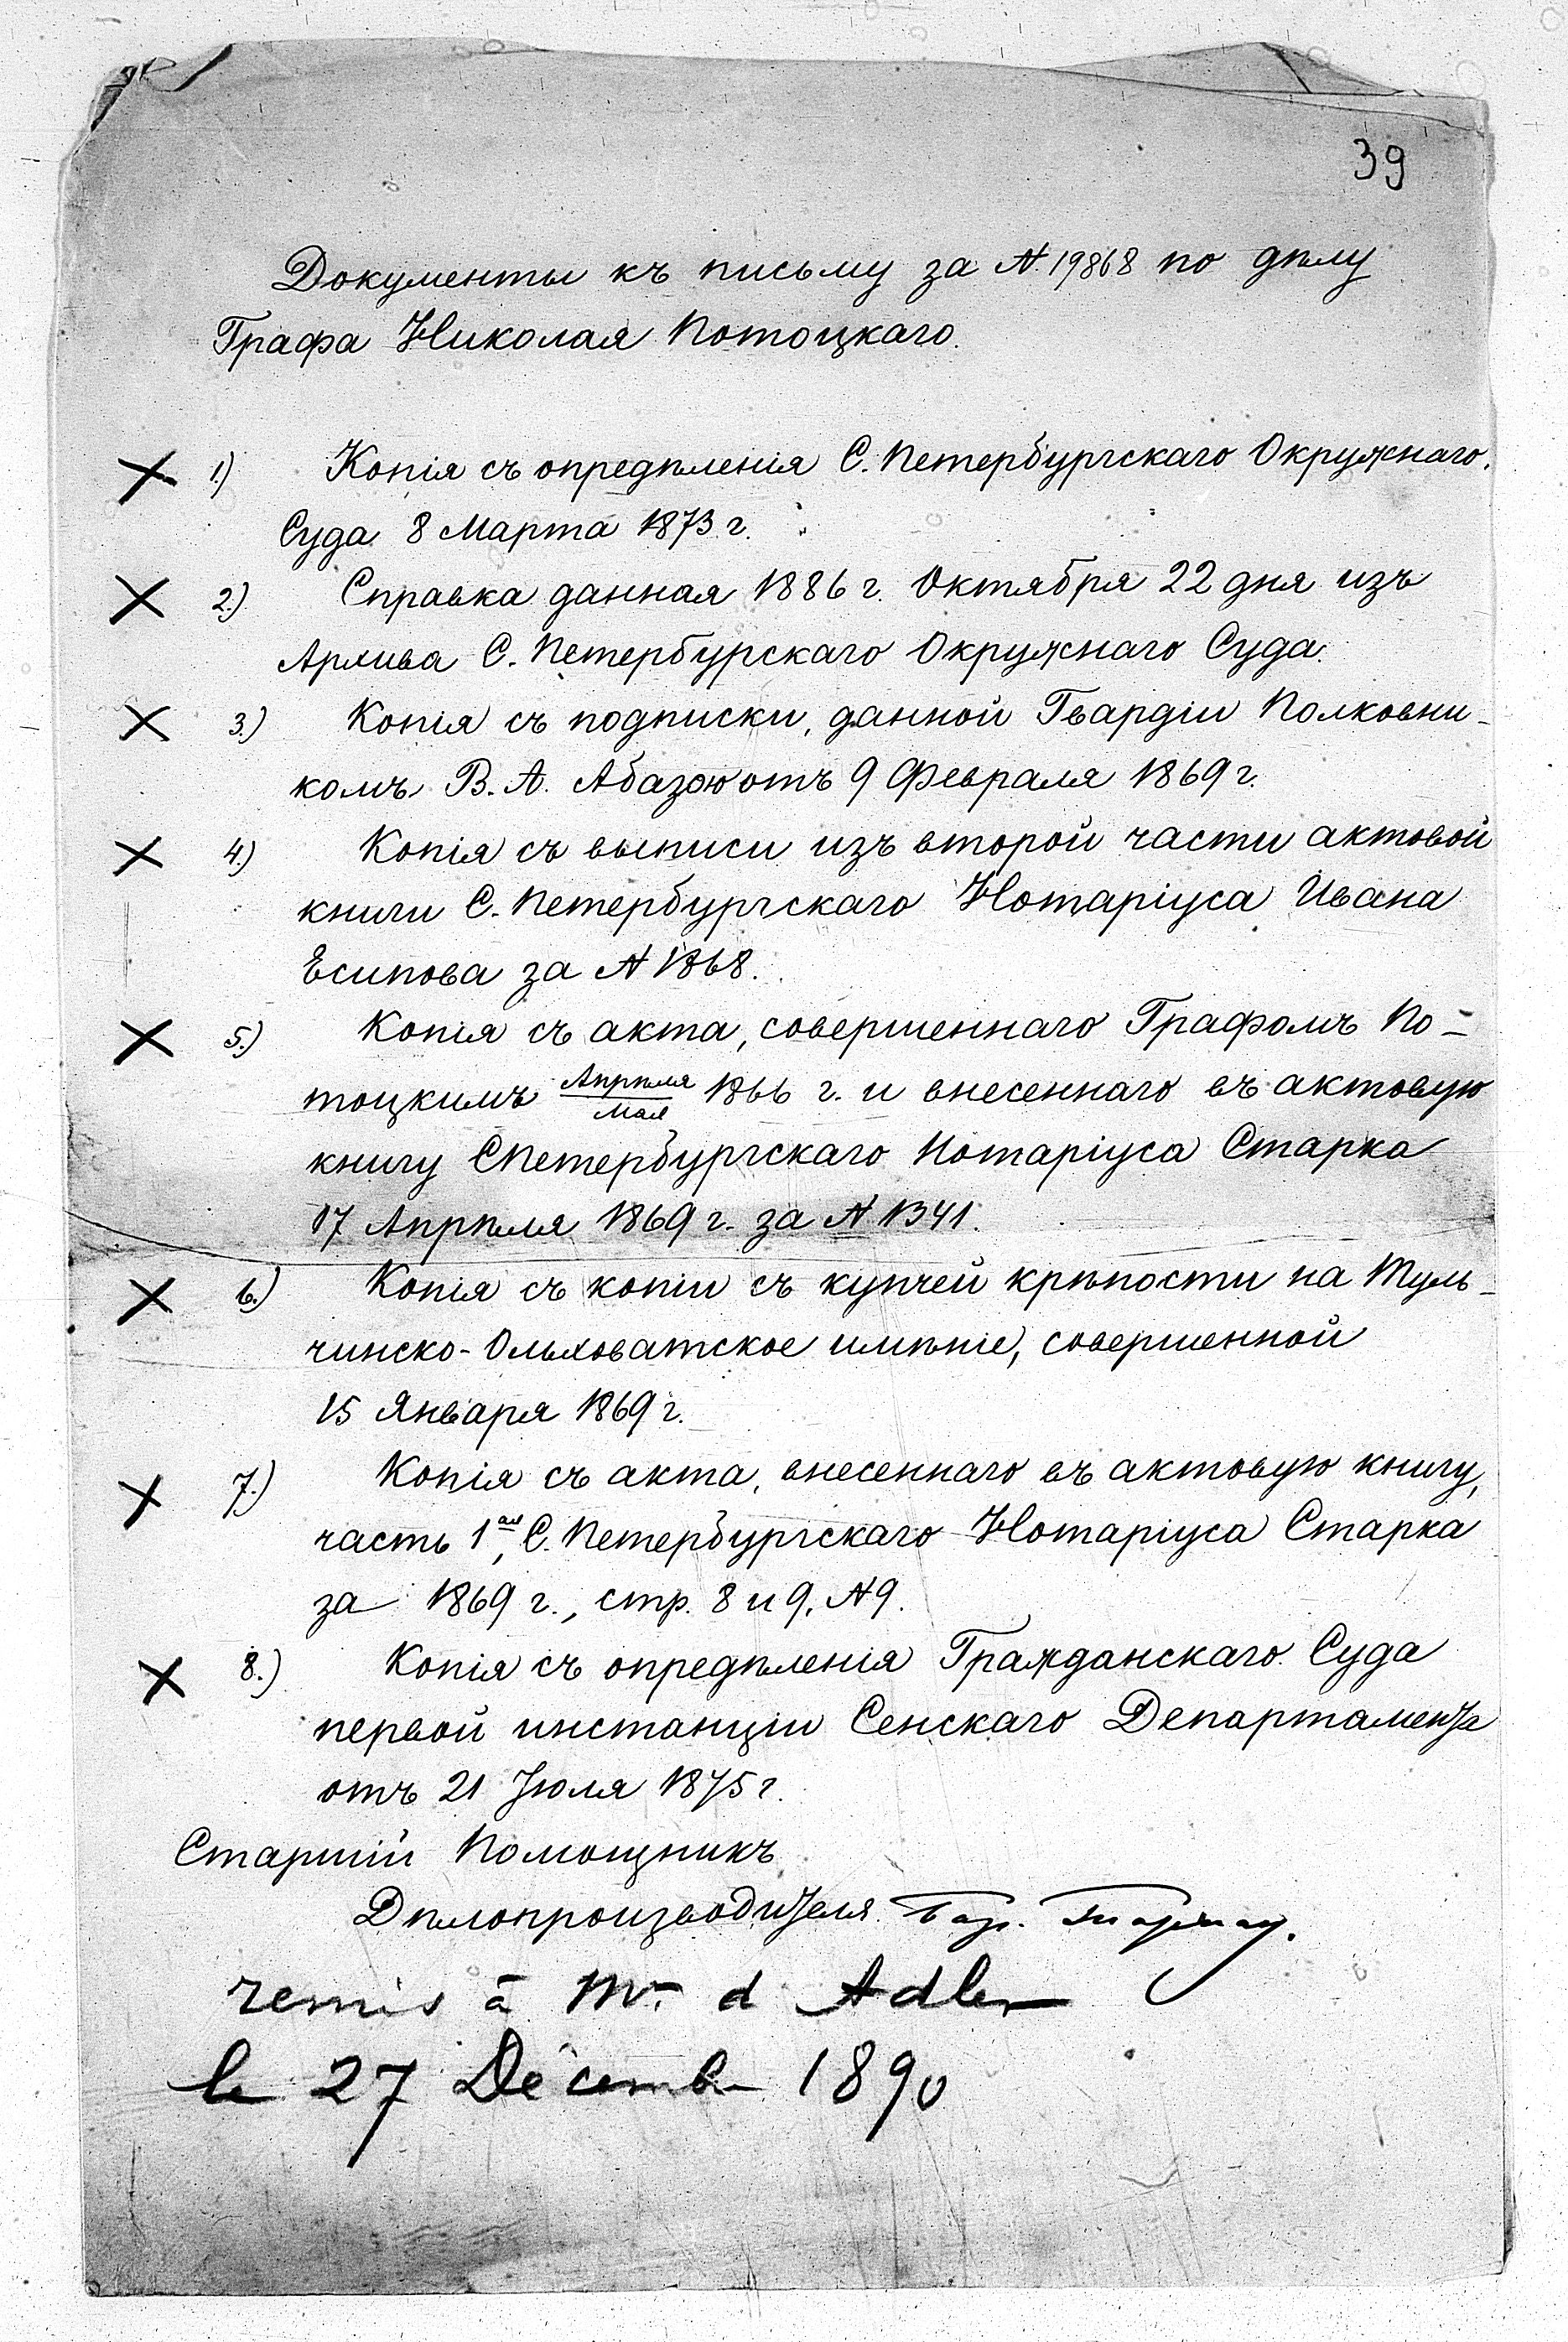 39
Документы къ письму за № 19868 по дѣлу
Графа Николая Потоцкаго.
1.) Копія съ опредѣленія С. Петербургскаго Окружнаго
Суда 8 Марта 1873 г.
2.) Справка данная 1886 г. Октября 22 дня изъ
Архива С. Петербурскаго Окружнаго Суда.
3.) Копія съ подписки, данной Гвардіи Полковни-
комъ В. А. Абазою отъ 9 Февраля 1869 г.
4.) Копія съ выписи изъ второй части актовой
книги С. Петербургскаго Нотаріуса Ивана
Есипова за № 1868.
5.) Копія съ акта, совершеннаго Графомъ По-
тоцкимъ Апрѣля/Мая 1866 г. и внесеннаго въ актовую
книгу СПетербургскаго Нотаріуса Старка
17 Апрѣля 1869 г. за № 1341.
6.) Копія съ копіи съ купчей крѣпости на Туль-
чинско-Ольховатское имѣніе, совершенной
15 Января 1869 г.
7.) Копія съ акта, внесеннаго въ актовую книгу,
часть 1ая, С. Петербургскаго Нотаріуса Старка
за 1869 г., стр. 8 и 9, № 9.
8.) Копія съ опредѣленія Гражданскаго Суда
первой инстанціи Сенскаго Департамента
отъ 21 Іюля 1875 г.
Старшій Помощникъ
Дѣлопроизводителя Бар.
remis à Mr. d Adler
le 27 Décembre 1890